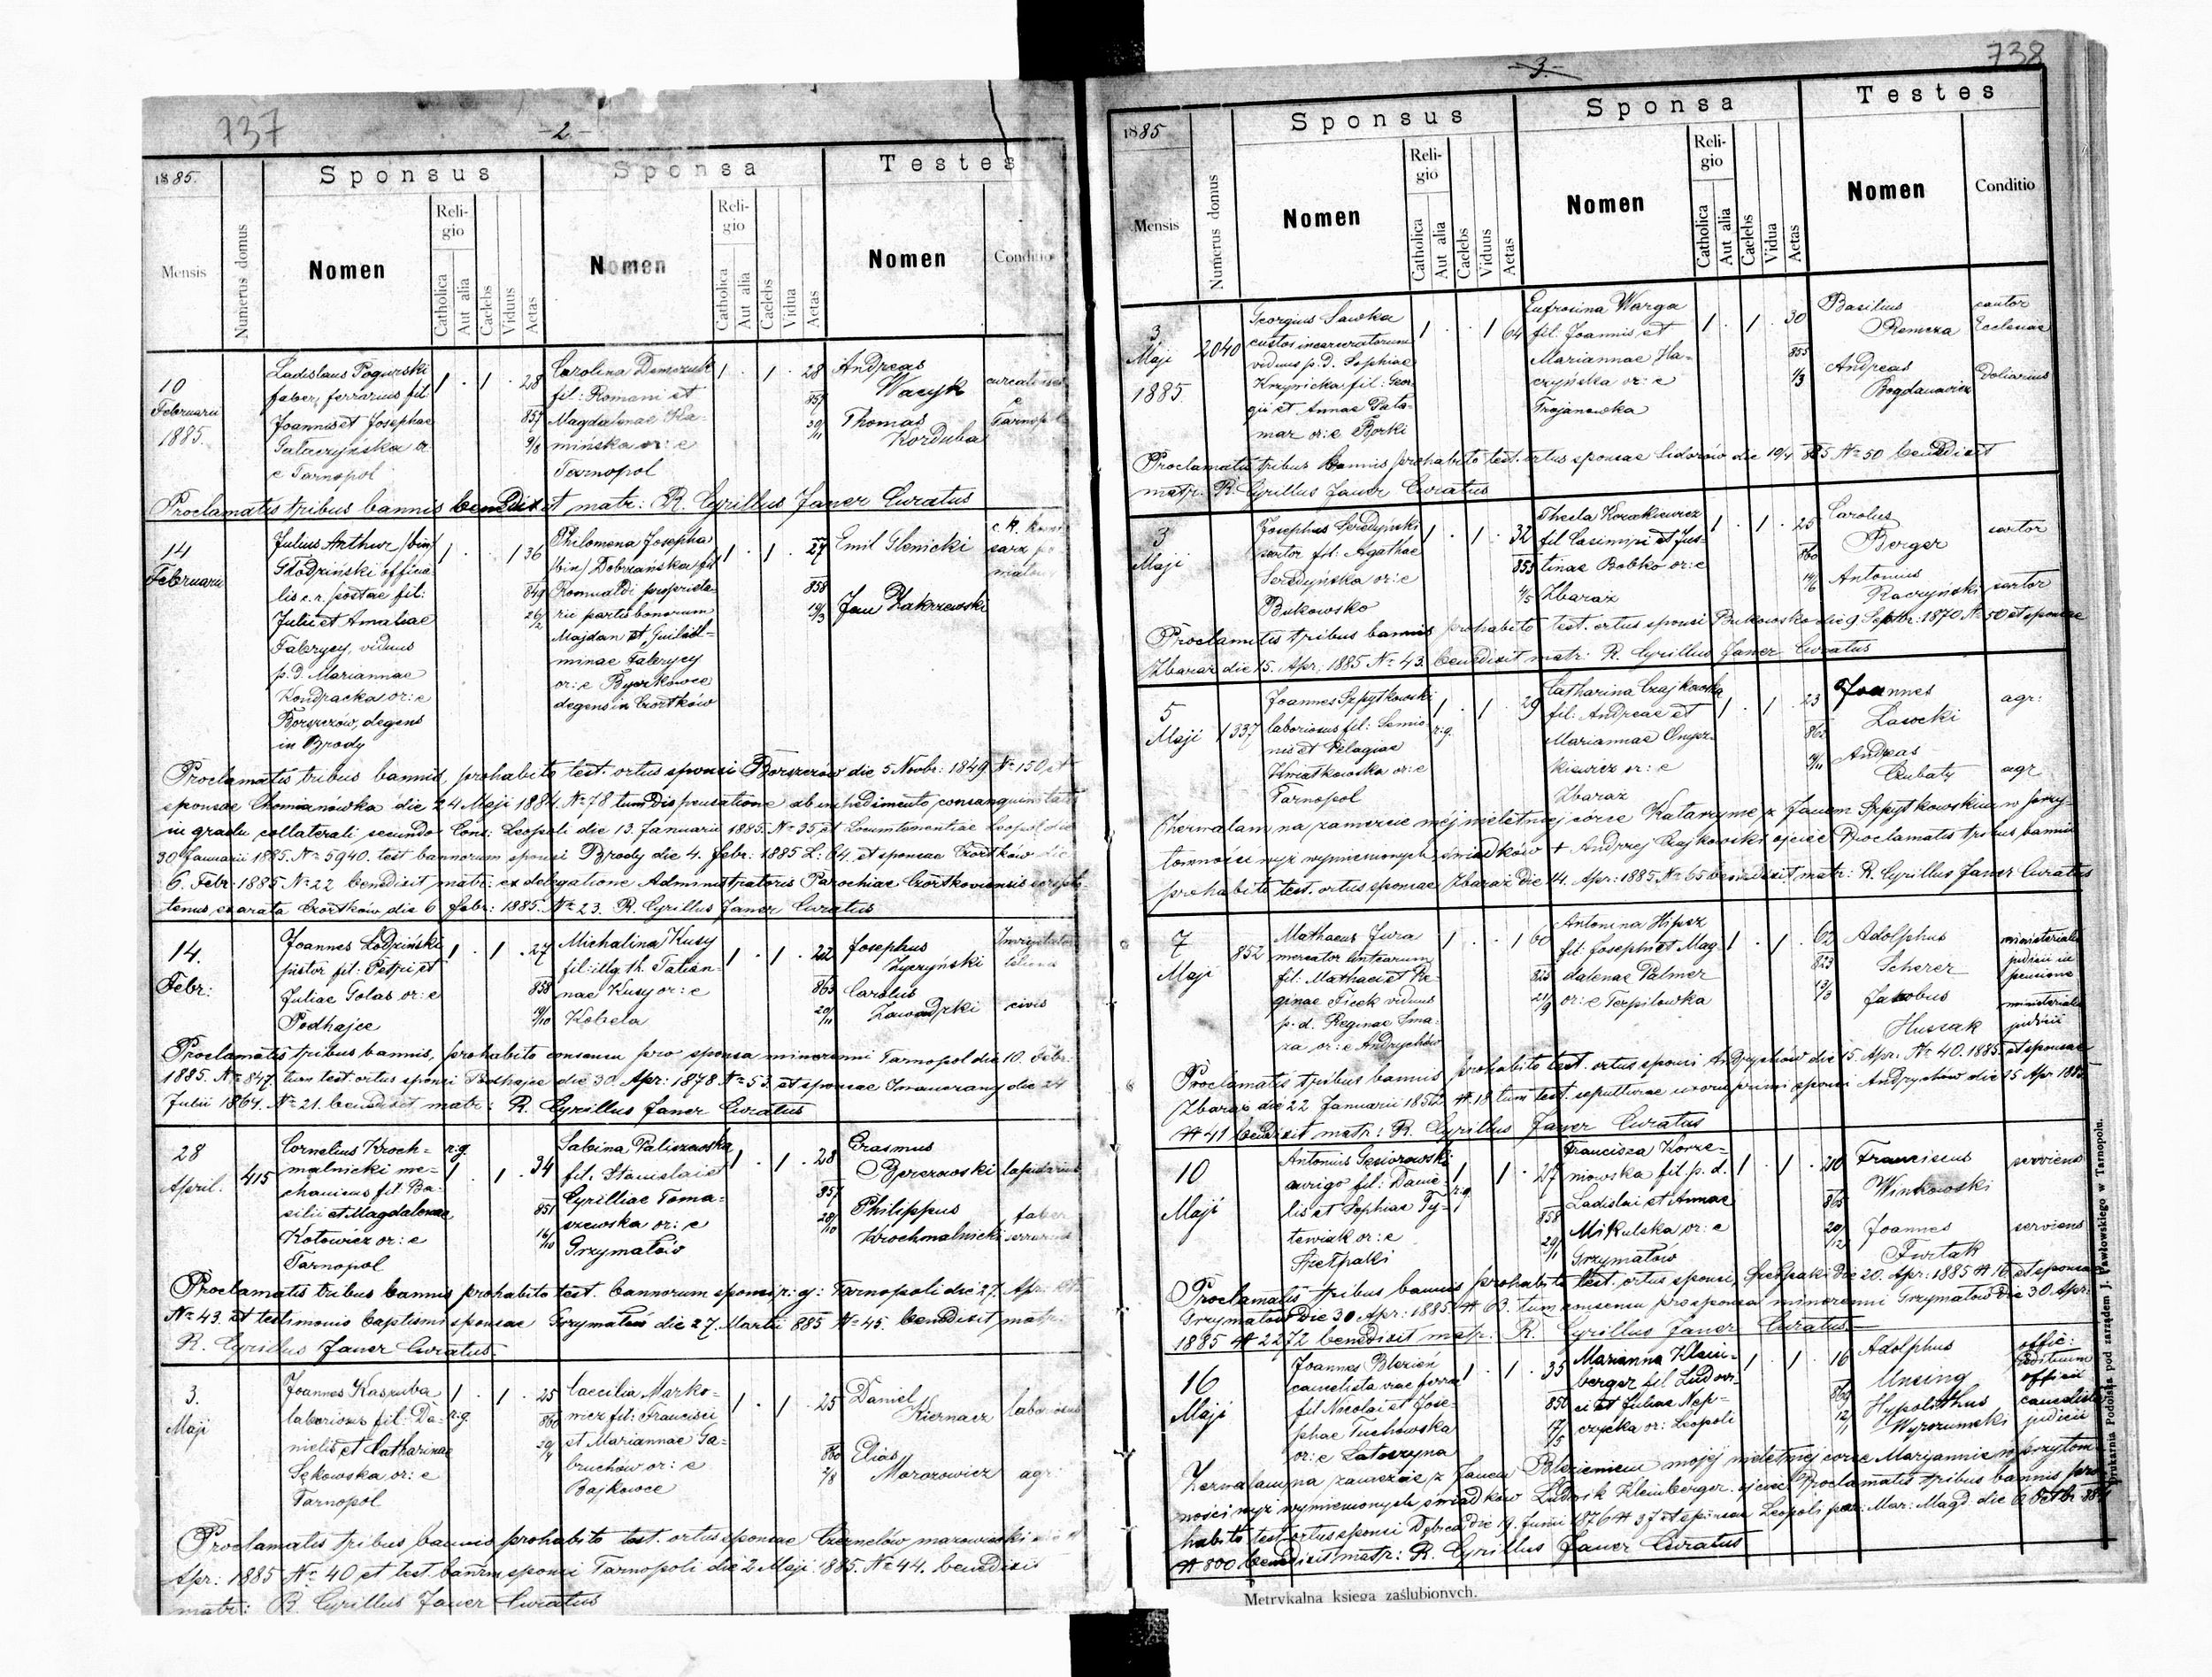 737
-2-
1885.
Sponsus
Sponsa
Testes
Mensis
Numerus domus
Nomen
Religio
Catholica
Aut alia
Caelebs
Viduus
Aetas
Nomen
Religio
Catholica
Aut alia
Caelebs
Vidua
Aetas
Nomen
Conditio
10
Februarii
1885.
Ladislaus Pogurski
faber ferrarius fil:
Joannis et Josephae
e Tarnopol
1 . 1 . 28
857
9/8
Carolina Demczuk
fil: Romani et
Magdalenae Ka-
mińska or: e
Tarnopol
1 . 1 . 28
857
Andreas
Wacyk
Thomas
Korduba
Proclamatis tribus bannis benedixit matr: R. Cyrillus Janer Curatus
14
Februarii
Julius Arthur /bin/
Głodziński officia-
lis c. r. postae fil:
Julii et Amaliae
Falerycy, viduus
p. d. Mariannae
Kondracka or: e
Borszczów, degens
in Brody
1 . . 1 36
849
26/2
Philomena Josepha
/bin/ Dobrzańska fil
Romualdi proprieta-
rii partis bonorum
Majdan et Guilel-
minae Falerycy
or: e Byczkowce
degens in Czortków
1 . 1 . 27
858
19/3
Emil Glenicki
Jan Zakrzewski
Proclamatis tribus bannis, prohabito test. ortus sponsi Borszczów die 5 Novbr: 1849 № 150 et
sponsae Chomianówka die 24 Maji 1884. № 78 tum Dispensatione ab impedimento consanguinitatis
in gradu collaterali secundo Cons: Leopoli die 13. Januarii 1885. № 35 et Locumtenentiae Leopol die
30 Januarii 1885. № 5940. test bannorum sponsi Brody die 4. Febr: 1885 L: 64. et sponsae Czortków die
6. Febr: 1885 № 22 benedixit matr: ex delegatione Administratoris Parochiae Czortkoviensis scripto
tenus exarata Czortków die 6 Febr: 1885. № 23. R. Cyrillus Janer Curatus
14.
Febr:
Joannes Łodziński
pistor fil: Petri et
Juliae Golas or: e
Podhajce
1 . 1 . 27
858
Michalina Kusy
fil: illg th. Tatian-
nae Kusy or: e
Kobela
1 . 1 . 22
863
20/11
Josephus
Życzyński
Carolus
Zawadzki
civis
Proclamatis tribus bannis, prohabito consensu pro sponsa minorenni Tarnopol die 10. Febr:
1885. № 847. tum test. ortus sponsi Podhajce die 30. Apr: 1878 № 53. et sponsae die 24
Julii 1864. № 21. benedixit matr: R. Cyrillus Janer Curatus
28
April.
415
Cornelius Kroch-
malnicki me-
chanicus fil: Ba-
silii et Magdalenae
Kotowicz or: e
Tarnopol
r: g.
1 . 1 . 34
851
16/10
Sabina Paliszewska
fil: Stanislai et
Cyrilliae Toma-
szewska or: e
Grzymałów
1 . 1 . 28
857
28/10
Erasmus
Brzezowski
lapidarius
Philippus
Krochmalnicki
faber
Proclamatis tribus bannis prohabito test. bannorum sponsi r: g: Tarnopoli die 27. Apr:
№ 43. et testimonio baptismi sponsae Grzymałów die 27. Martii 885 № 45. benedixit matr:
R. Cyrillus Janer Curatus.
3.
Maji
Joannes Kaszuba
laboriosus fil: Da-
nielis et Catharinae
Sękowska or: e
Tarnopol
1 . 1 . 25
r: g.
860
Caecilia Marko-
wicz fil: Francisci
et Mariannae Ga-
bruchów or: e
Bajkowce
1 . 1 . 25
860
2/8
Daniel
Kiernacz
laboriosus
Elias
Morozowicz
agr:
Proclamatis tribus bannis prohabito test. ortus sponsae Czernelów mazowiecki die
Apr: 1885 № 40 et test. bannm sponsi Tarnopoli die 2 Maji 1885. № 44. benedixit
matr: R. Cyrillus Janer Curatus
738
-3-
1885
Sponsus
Sponsa
Testes
Mensis
Numerus domus
Nomen
Religio
Catholica
Aut alia
Caelebs
Viduus
Aetas
Nomen
Religio
Catholica
Aut alia
Caelebs
Vidua
Aetas
Nomen
Conditio
3
Maji
1885.
2040
Georgius Sawka
custos incarceratorum
viduus p. d. Sophiae
Krzynicka fil: Geor-
gii et Annae Pała-
mar or: e Borki
1 . . 1 64
Eufrosina Warga
fil. Joannis et
Mariannae Ha-
czyńska or: e
Trojanówka
1 . 1 . 30
855
1/3
Basilius
Remeza
cantor
Ecclesiae
Andreas
Bogdanowicz
Doliarius
Proclamatis tribus bannis prohabito test. ortus sponsae Sidorów die 19/4 885 № 50 benedixit
matr: R. Cyrillus Janer Curatus
3
Maji
Josephus Seredyński
sartor fil: Agathae
Seredyńska or: e
Bukowsko
1 . 1 . 32
853
4/5
Thecla Kozakiewicz
fil Casimiri et Jus-
tinae Bobko or: e
Zbaraż
1 . 1 . 25
860
14/6
Carolus
Berger
sartor
Antonius
Raczyński
sartor
Proclamatis tribus bannis prohabito test. ortus sponsi Bukowsko die 9. Septbr: 1870 № 50 et sponsae
Zbaraż die 15. Apr: 1885 № 43. benedixit matr: R. Cyrillus Janer Curatus
5
Maji
1337
Joannes Szpytkowski
laboriosus fil: Semio-
nis et Pelagiae
Kwiatkowska or: e
Tarnopol
1 . 1 . 29
r: g.
Catharina Czajkowska
fil: Andreae et
Mariannae
or: e
Zbaraż
1 . 1 . 23
862
Joannes
Lasocki
agr:
Andreas
Czubaty
agr
Zezwalam na zamęźcie méj nieletniej córce Katarzynie z Janem Szpytkowskim w przy-
tomności wyż wymienionych świadków + Andrzej Czajkowski ojciec Proclamatis tribus bannis
prohabito test. ortus sponsae Zbaraż die 14. Apr: 1885 № 65 benedixit matr: R. Cyrillus Janer Curatus
7
Maji
852
Mathaeus Jura
mercator lintearum
fil: Mathaei et Re-
ginae Ficek viduus
p. d. Reginae Sma-
za or: e Andrychów
1 . . 1 60
825
21/9
Antonina Hipsz
fil: Josephi et Mag-
dalenae Palmer
or: e Terpiłowka
1 . 1 . 62
823
13/3
Adolphus
Scherer
ministerialis
judicii in
pensione
Jakobus
Huszak
ministerialis
judicii
Proclamatis tribus bannis prohabito test. ortus sponsi Andrychów die 15. Apr: № 40. 1885. et sponsae
Zbaraż die 22 Januarii 1852 № 18 tum test. sepulturae uxoris primi sponsi Andrychów die 15 Apr 1885
№ 41 benedixit matr: R. Cyrillus Janer Curatus
10
Maji
Antonius Gęsiorowski
auriga fil: Danie-
lis et Sophiae Ty-
tewiak or: e
Szełpaki
1 . 1 . 27
r: g.
858
29/1
Francisca Korze-
niowska fil p. d.
Ladislai et Annae
Mikulska or: e
Grzymałow
1 . 1 . 20
865
20/12
Franciscus
Winkowski
serviens
Joannes
Furtak
serviens
Proclamatis tribus bannis prohabito test. ortus sponsi, Szełpaki die 20. Apr: 1885 № 16. et sponsae
Grzymałow die 30 Apr: 1885 № 63. tum consensu pro sponsa minorenni Grzymałow die 30 Apr:
1885 № 2272 benedixit matr: R. Cyrillus Janer Curatus.
16
Maji
Joannes Blezień
cancelista viae ferra
fil Nicolai et Jose-
phae Tuchowska
or: e Latoszyna
1 . 1 . 35
850
17/5
Marianna Klein-
berger fil Ludovi-
ci et Juliae Nep-
czycka or: Leopoli
1 . 1 . 16
869
12/11
Adolphus
Unsing
offic:
Hypolithus
Wyrozumski
cancelista
judicii
Zezwalam na zamęzcie z Janem Blezieniem mojéj nieletniéj córce Maryannie w przytom-
ności wyż wymienionych świadków Ludwik Kleinberger ojciec Proclamatis tribus bannis pro-
habito test. ortus sponsi Dębica die 19. Junii 1876 № 37 et sponsae Leopoli par: Mar: Magd. die 6 Octbr 884
№ 800 benedixit matr: R. Cyrillus Janer Curatus
Metrykalna księga zaślubionych.
Drukarnia Podolska pod zarządem J. Pawłowskiego w Tarnopolu.